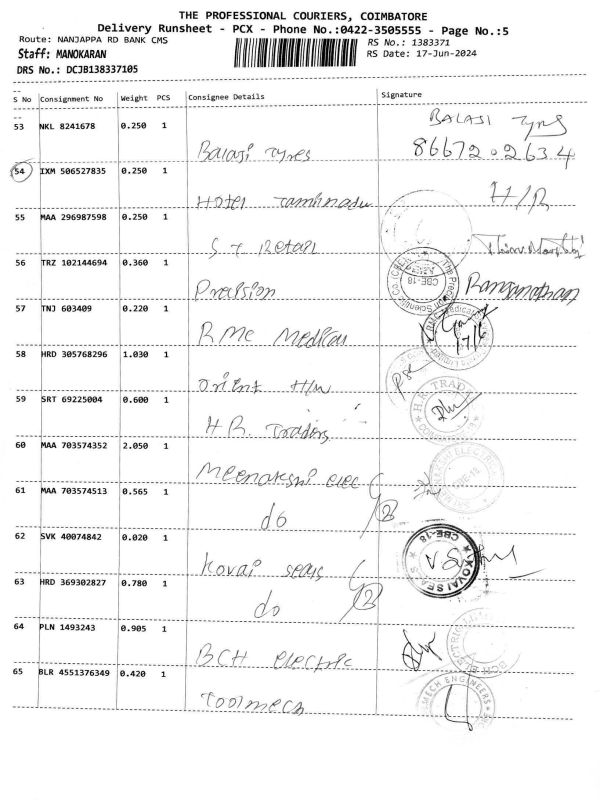 THE PROFESSIONAL COURIERS, COIMBATORE
Delivery Runsheet - PCX - Phone No.:0422-3505555 - Page No.:5
Route: NANJAPPA RD BANK CMS
RS No.: 1383371
Staff: MANOKARAN
RS Date: 17-Jun-2024
DRS No.: DCJB138337105
S No Consignment No Weight PCS Consignee Details Signature
53 NKL 8241678 0.250 1
Balaji Tyres
BALAJI Tyres
86672 02634
54 IXM 506527835 0.250 1
Hotel Tamilnadu
H/R
55 MAA 296987598 0.250 1
S T Retail
56 TRZ 102144694 0.360 1
Precision
CBE-18
Ranganathan
57 TNJ 603409 0.220 1
RMC Medical
17/6
58 HRD 305768296 1.030 1
Orient H/W
59 SRT 69225004 0.600 1
H R. Traders
H.R. TRAD
60 MAA 703574352 2.050 1
Meenakshi elec
CBE-18
61 MAA 703574513 0.565 1
do
2
62 SVK 40074842 0.020 1
Kovai seals
CBE-18
KOVAI SEALS
63 HRD 369302827 0.780 1
do
2
64 PLN 1493243 0.905 1
BCH electric
BCH ELECTRIC
65 BLR 4551376349 0.420 1
Toolmech
LMECH ENGINEERS